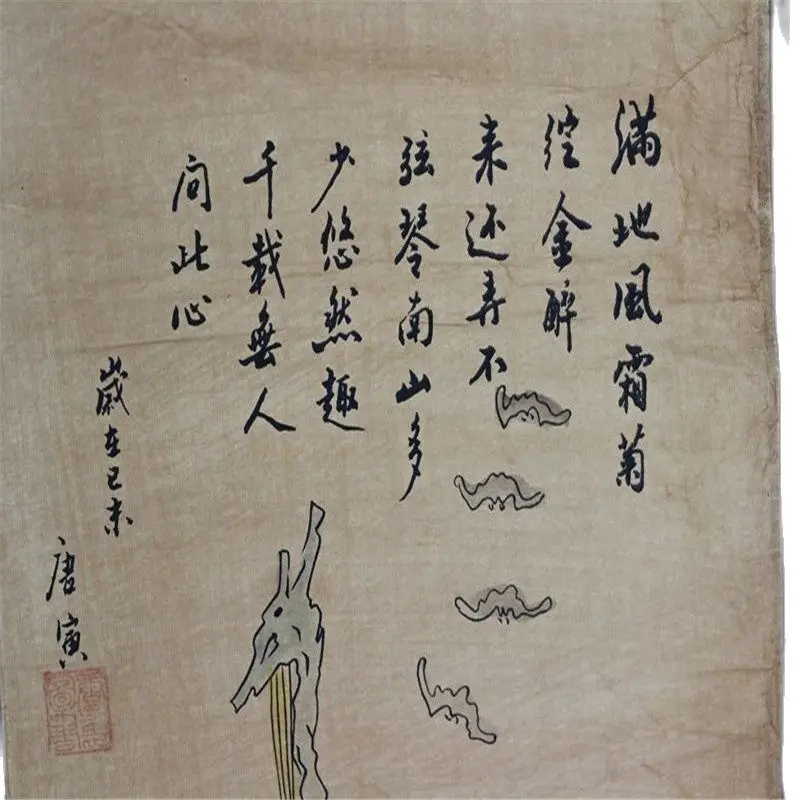 滿地風霜菊
绽金醉
来还弄不
弦琴南山多
少悠然趣
千載無人
问此心
歲在己未
唐寅